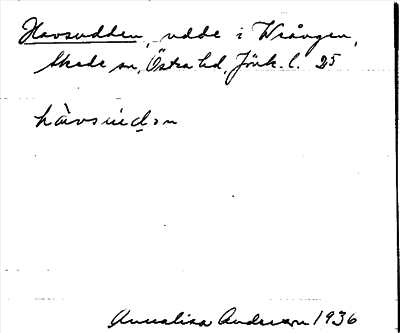 Havsudden, udde i Wrången,
Skede sn, Östra hd, Jönk. l. 25
hàvsúdən
Annalisa Andersson 1936